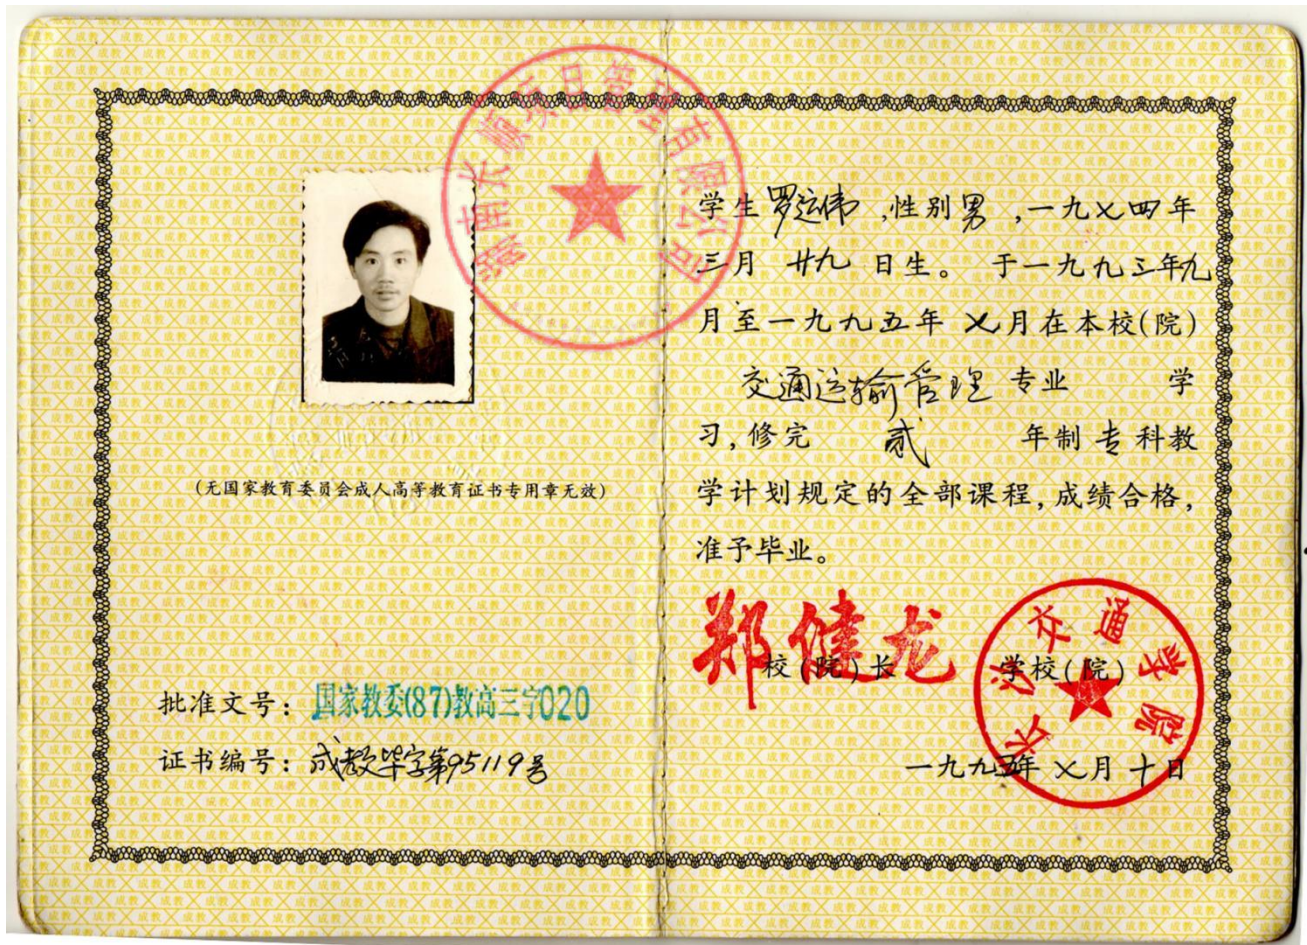 湖南长顺项目管理有限公司
(无国家教育委员会成人高等教育证书专用章无效)
批准文号：国家教委(87)教高三字020
证书编号：成教毕字第95119号
学生 罗运伟 ,性别男 ,一九七四年
三月 廿九 日生。 于一九九三年九
月至一九九五年 七月在本校(院)
交通运输管理 专业 学
习,修完 贰 年制 专科教
学计划规定的全部课程,成绩合格,
准予毕业。
郑健龙
校(院)长 学校(院)
长沙交通学院
一九九五年 七月 十日